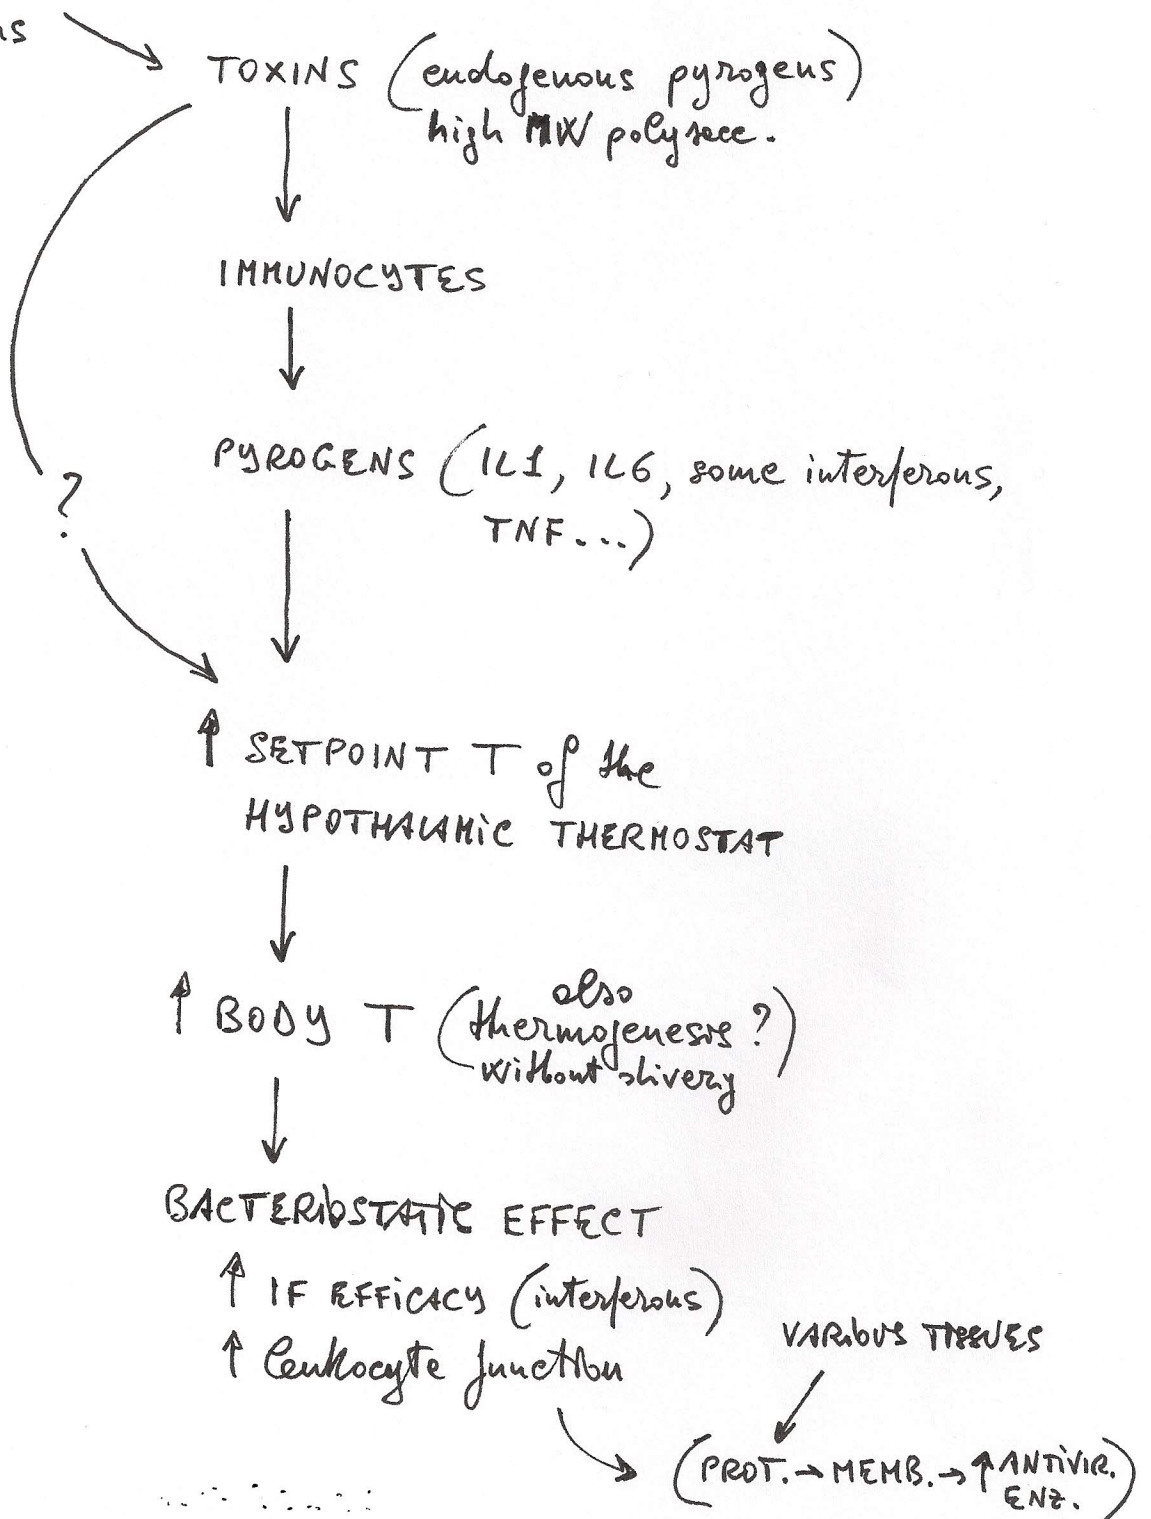 ns
TOXINS (endogenous pyrogens)
high MW polysacc.
IMMUNOCYTES
PYROGENS (IL1, IL6, some interferons,
TNF...)
?
↑ SETPOINT T of the
HYPOTHALAMIC THERMOSTAT
↑ BODY T (also
thermogenesis?)
without shivery
BACTERIOSTATIC EFFECT
↑ IF EFFICACY (interferons)
↑ leukocyte function
VARIOUS TISSUES
(PROT. → MEMB. → ↑ ANTIVIR.
ENZ.)